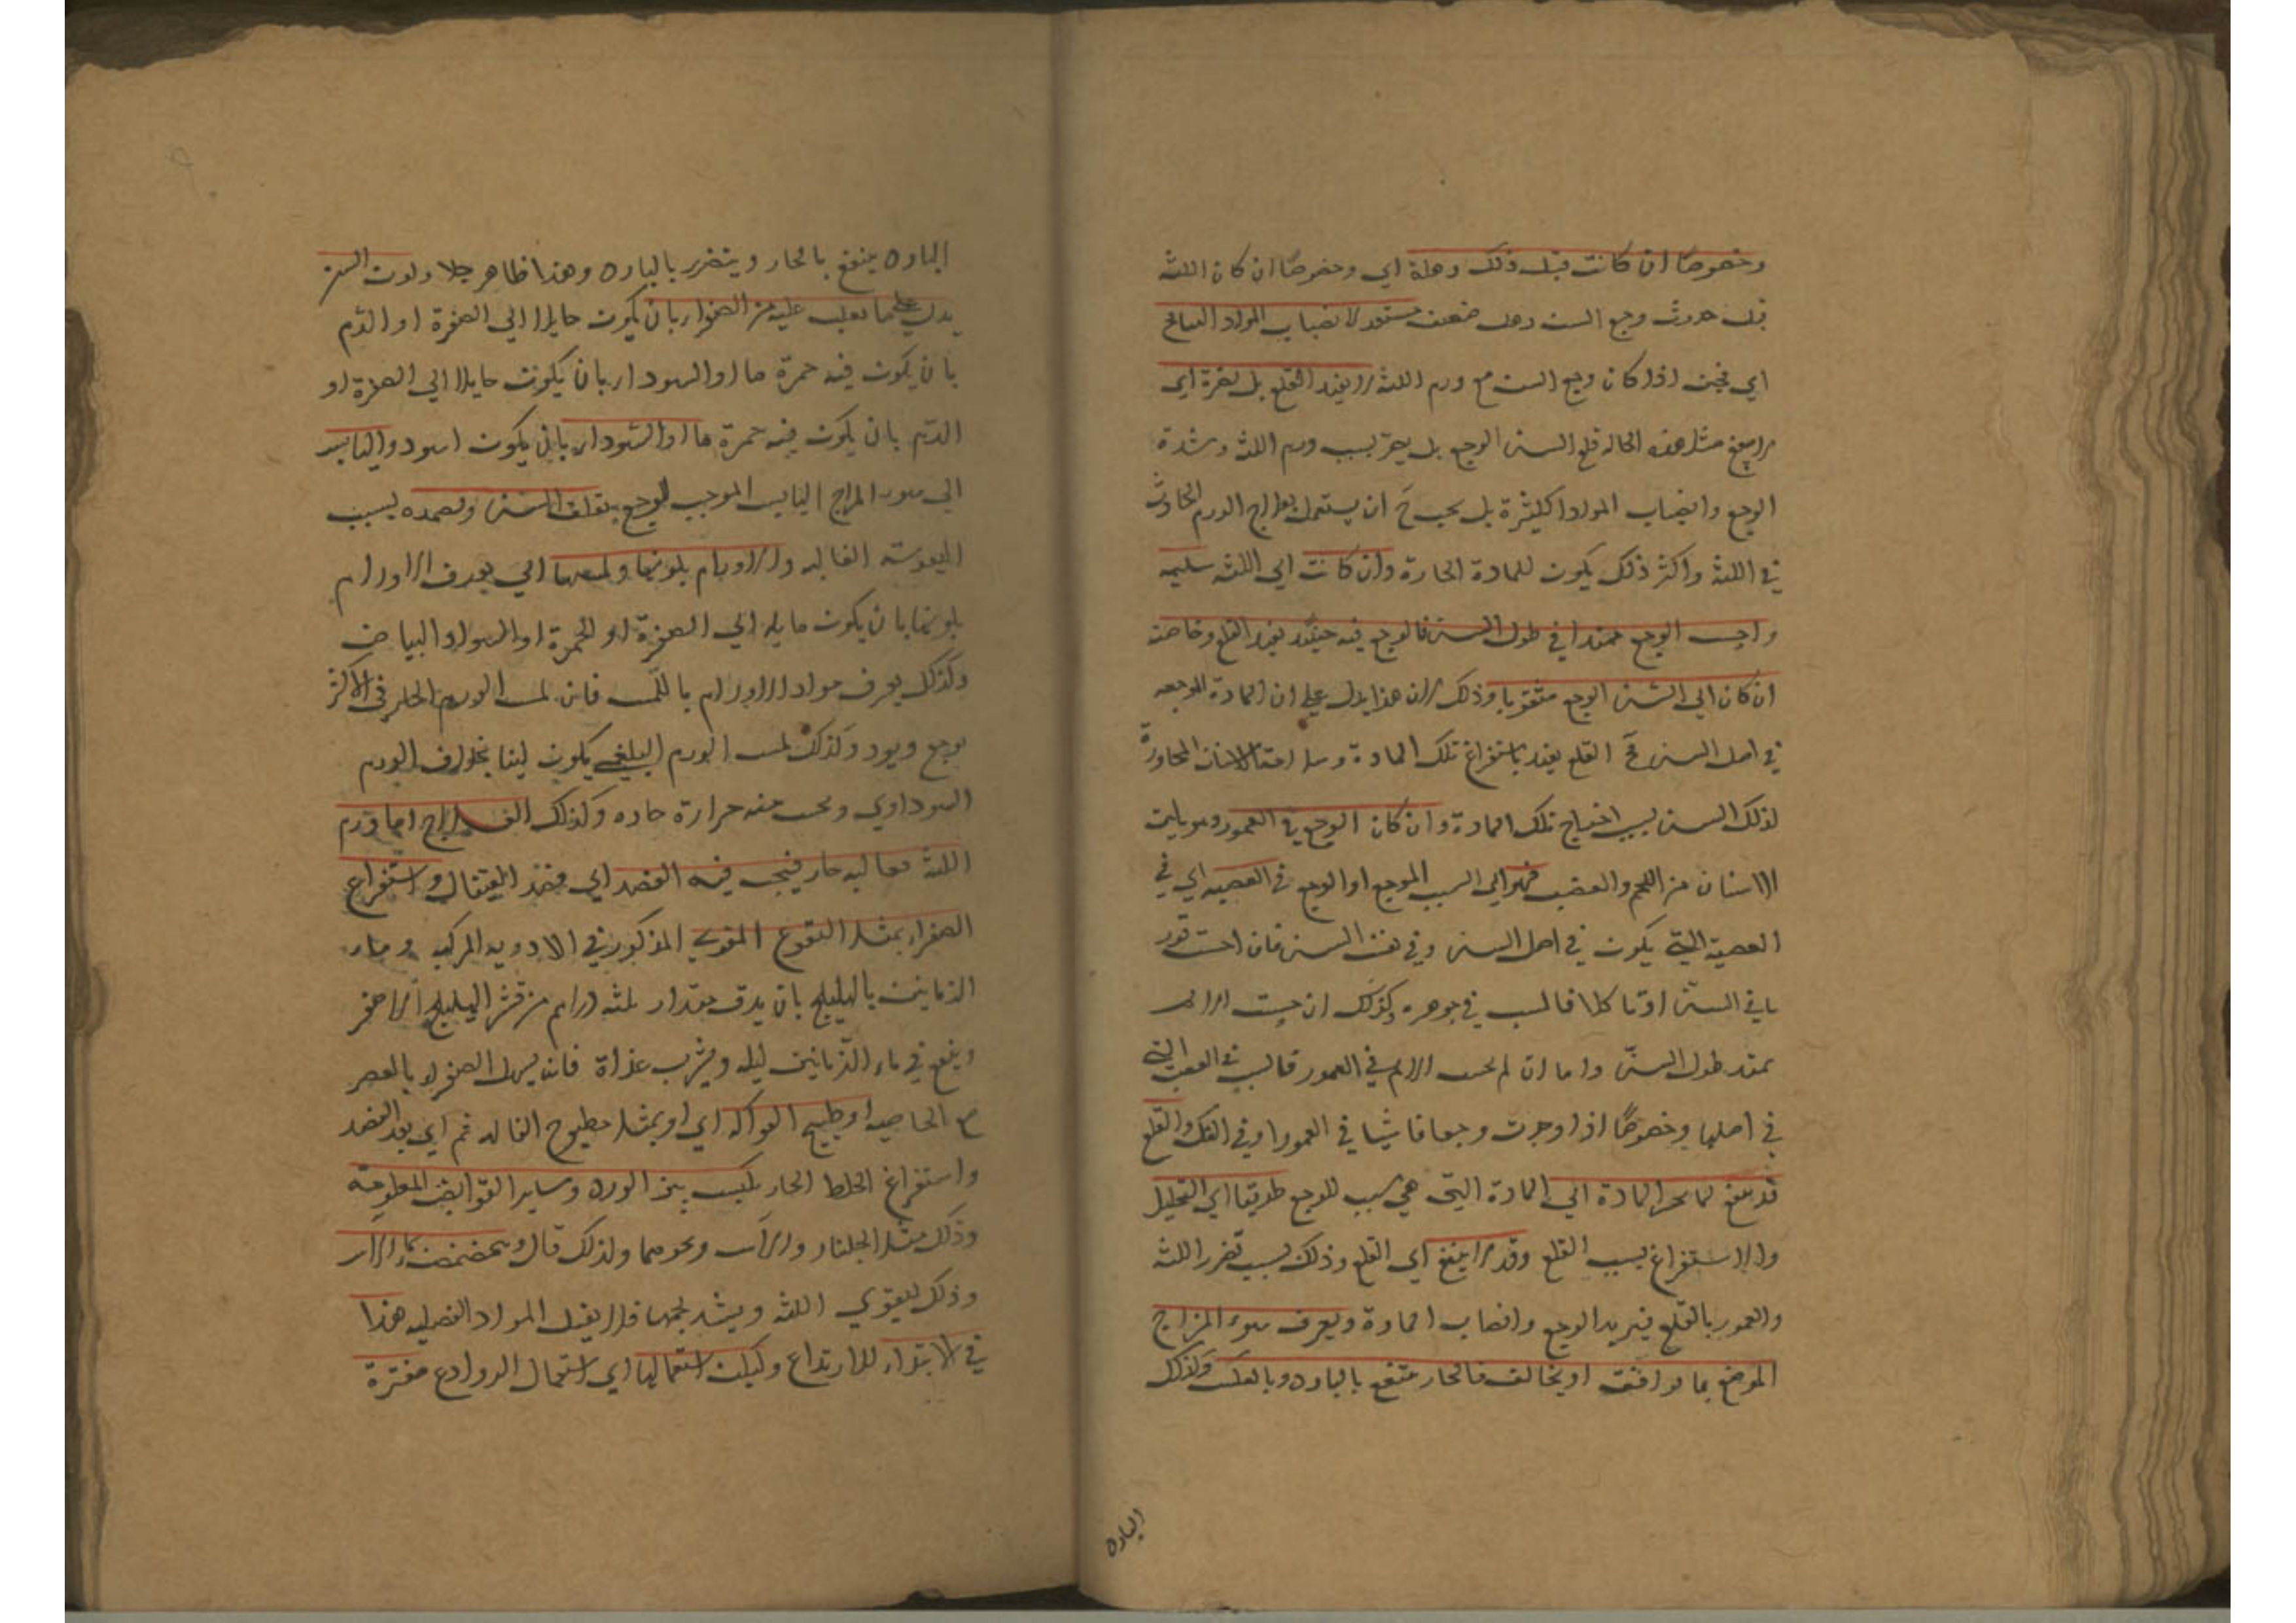 وخصوصًا ان كانت قبل ذلك رهلة اي وخصوصًا ان كان اللثه
قبل حدوث وجع السن رهل ضعف مستعد لانصباب المواد السالح
اي فحين اذا كان وجع السن مع ورم اللثه لا يفيد القلع بل يضره اي
لا ينفع مثل هذه الحاله قلع السن الوجع بل يضر بسبب ورم اللثه وشدة
الوجع وانصباب المواد الكثيرة بل يجب ح ان يستعمل بعلاج الورم الحادث
في اللثه واكثر ذلك يكون للمادة الحارة وان كانت اي اللثه سليمه
واحس الوجع ممتدا في طول السن فالوجع فيه حينئذ يفيد القلع وخاصته
ان كان اي السن الوجع مثقوبا وذلك لان هذا يدل علي ان المادة الموجعه
في اصل السن فح القلع يفيد باستفراغ تلك المادة وسلامة الاسنان المجاورة
لذلك السن بسبب احتباس تلك المادة وان كان الوجع في العمور وهو ما بين
الاسنان من اللحم والعصب فهو اي السبب الموجع او الوجع في العصبه اي في
العصبة التي يكون في اصل السن وفي نفس السن فان احست
ما في السن او تاكلا فالسبب في جوهره وكذلك ان حست الالم
يمتد طول السن واما ان لم يحس الالم في العمور فالسبب في العصب التي
في اصلها وخصوصًا اذا وجدت وجعا فاشيا في العمور او في الفك والقلع
قد ينفع لما يجد المادة اي المادة التي هي سبب للوجع طريقا اي التحليل
والاستفراغ بسبب القلع وقد لا ينفع اي القلع وذلك بسبب تضرر اللثه
والعمور بالقلع فيزيد الوجع وانصاب المادة ويعرف سوء المزاج
الموضع بما يوافقه او يخالف فالحار ينتفع بالبارد وبالعكس وكذلك
البارد
البارد ينفع بالحار ويتضرر بالبارد وهذا ظاهر جلا ولون السن
يدل علي ما يغلب عليه من الصفراء بان يكون مايلا الي الصفرة او الدم
بان يكون فيه حمرة ما او السوداء بان يكون مايلا الي الصفرة او
الدم بان يكون فيه حمرة ما او السوداء بان يكون اسود واليابس
اي سوء المزاج اليابس الموجب للوجع بقلق السن وتصمده بسبب
اليبوسته الغالبه والاورام بلونها ولمسها اي يعرف الاورام
بلونها بان يكون مايله الي الصفرة او الحمرة او السواد والبياض
وكذلك يعرف مواد الاورام باللمس فان لمس الورم الحار في الاكثر
يوجع ويود وكذلك لمس الورم البلغمي يكون لينا بخلاف الورم
السوداوي ويحس منه حرارة حاده وكذلك العلاج اما ورم
اللثه فغالبه حار فيجب فيه الفصد اي فصد القيفال واستفراغ
الصفراء بمثل النقوع المقوي المذكور في الادويه المركبه وماء
الرمانين بالهليلج بان يدق مقدار ثلثه دراهم من قشر الهليلج الاصفر
وينقع في ماء الرمانين ليله ويشرب غداة فانه يسهل الصفراء بالعصر
مع الخاصيه او طبيخ الفواكه اي او بمثل مطبوخ الفاكه ثم اي بعد الفصد
واستفراغ الخلط الحار يكبس ببزر الورد وساير القوابض المعلومة
وذلك مثل الجلنار والآس ونحوهما ولذلك قال ويتمضمض بماء الآس
وذلك ليقوي اللثه ويشد لحمها فلا يقبل المواد الفضليه هذا
في الابتداء للارتداع وليكن استعمالها اي استعمال الروادع مفترة